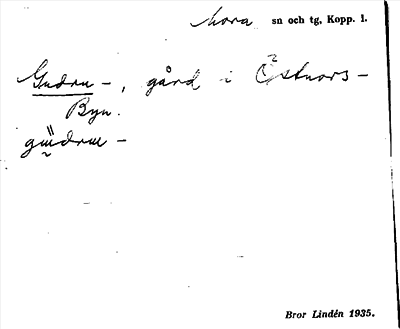 Mora sn och tg, Kopp. l.
Gudru -, gård i Östnors -
Byn.
Bror Lindén 1935.